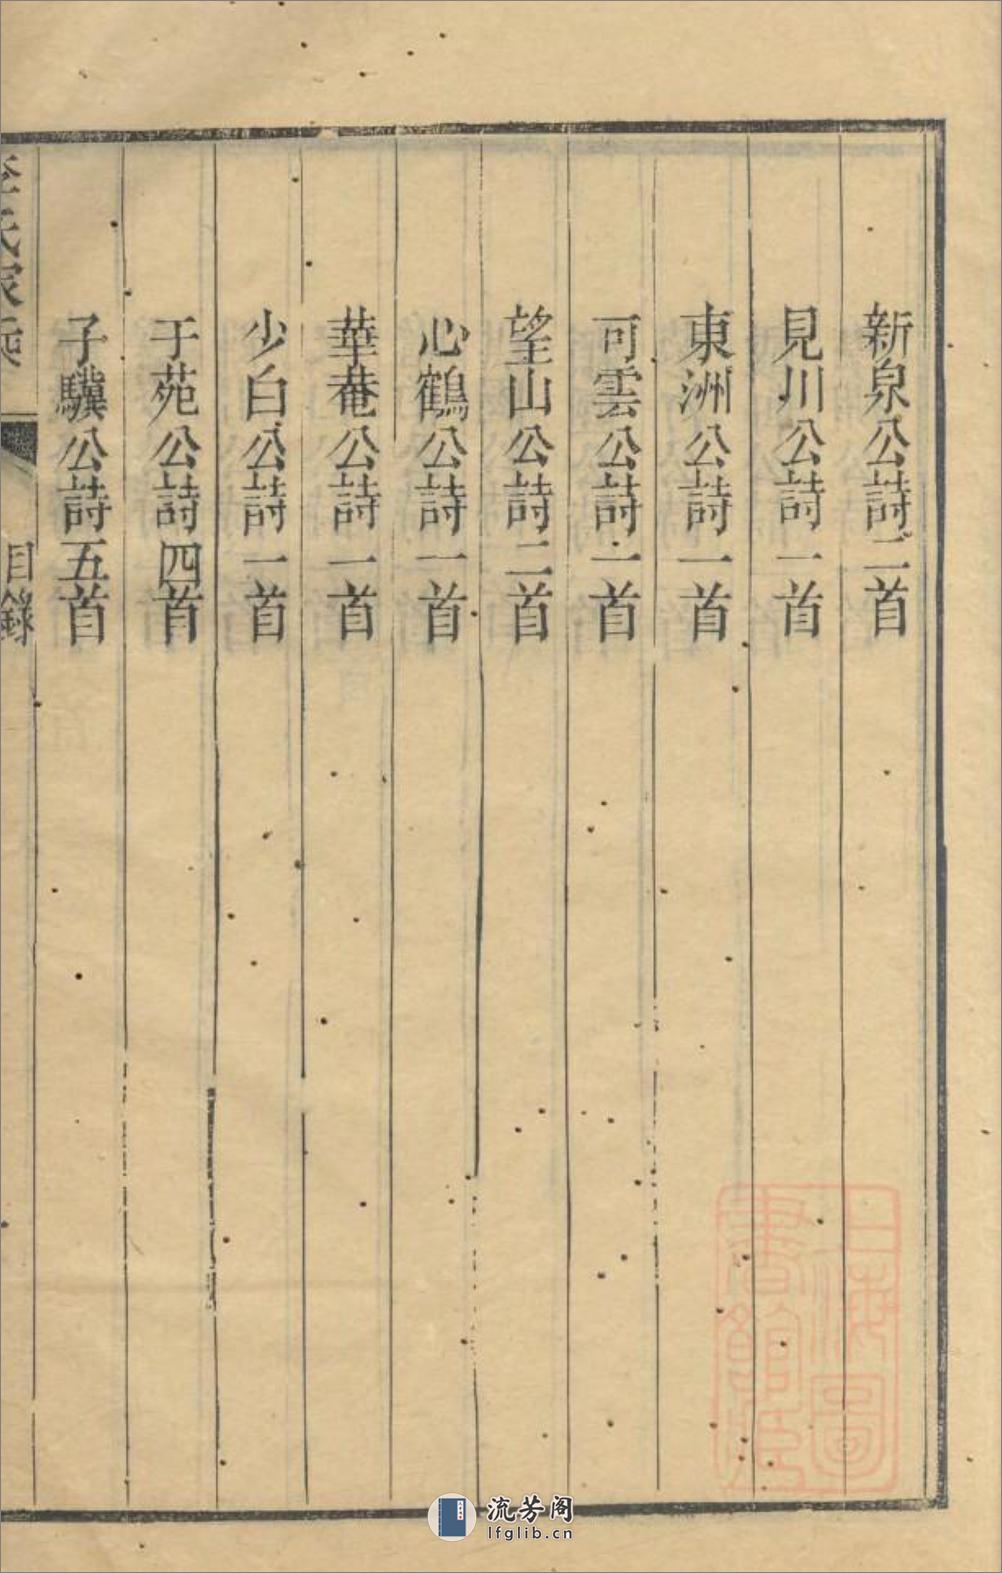 新泉公詩二首
見川公詩一首
東洲公詩一首
可雲公詩二首
望山公詩二首
心鶴公詩一首
華菴公詩一首
少白公詩一首
于苑公詩四首
子驥公詩五首
氏家乘
目錄
上海圖書館藏
流芳阁
lfglib.cn